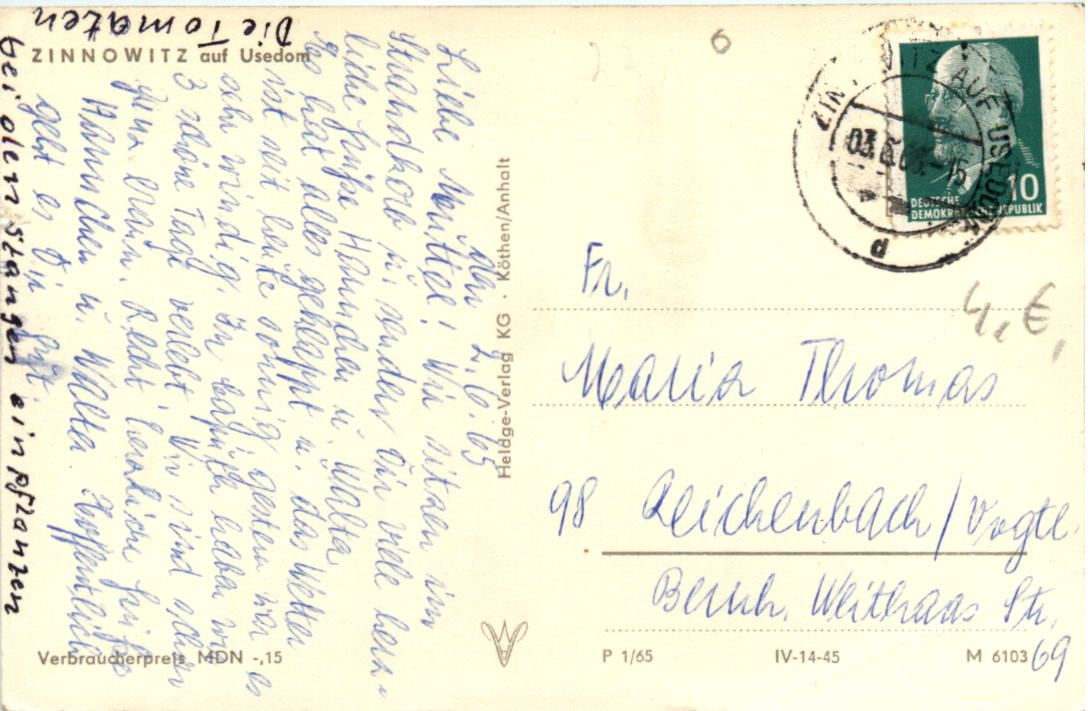 Die Tomaten
bei den Stangen einpflanzen
ZINNOWITZ auf Usedom
den 2.6.65
Liebe Muttel! Wir sitzen im
Strandkorb u. senden Dir viele herz-
liche Grüße Hannchen u. Walta
Es hat alles geklappt u. das Wetter
ist seit heute sonnig, gestern war es
sehr windig. In
3 schöne Tage verlebt. Wir sind schon
ganz braun. Recht herzliche Grüße
Hannchen u. Walta. Hoffentlich
geht es Dir gut.
Verbraucherpreis MDN -,15
Heldge-Verlag KG · Köthen/Anhalt
6
ZINNOWITZ AUF USEDOM
03.6.65.-15
d
10
DEUTSCHE
DEMOKRATISCHE REPUBLIK
4,- €,
Fr.
Maria Thomas
98 Reichenbach/Vogtl.
Bernh. Weithaas Str.
69
P 1/65 IV-14-45 M 6103